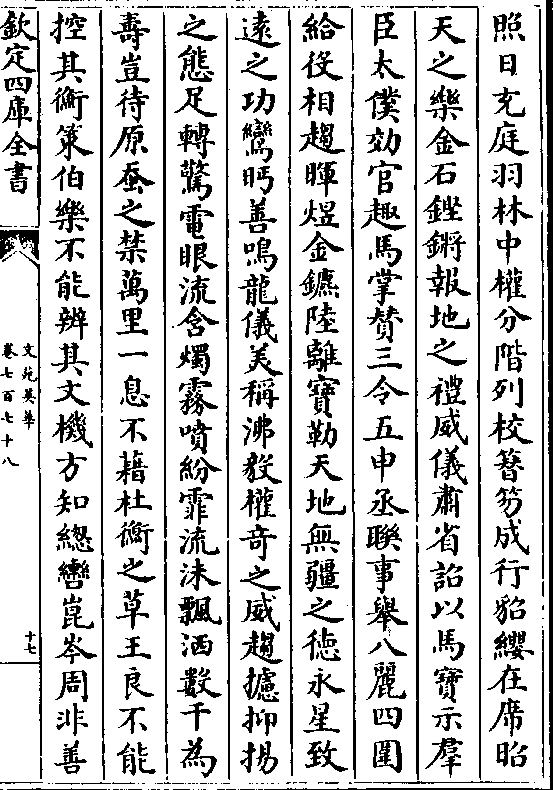 照日充庭羽林中權分階列校簪笏成行貂纓在席昭
天之樂金石鏗鏘報地之禮威儀肅省詔以馬寶示羣
臣太僕効官趣馬掌贊三令五申丞聯事舉八麗四圉
給役相趨暉煜金鑣陸離寶勒天地無疆之徳永星致
逺之功鸞眄善鳴龍儀美稱沸毅權竒之威趨攄抑揚
之態足轉驚電眼流含燭霧噴紛霏流沫飄洒數千為
壽豈待原蠶之禁萬里一息不藉杜衡之草王良不能
控其衡策伯樂不能辨其文機方知緫轡崑岑周非善
欽定四庫全書
文苑英華
卷七百七十八
十七